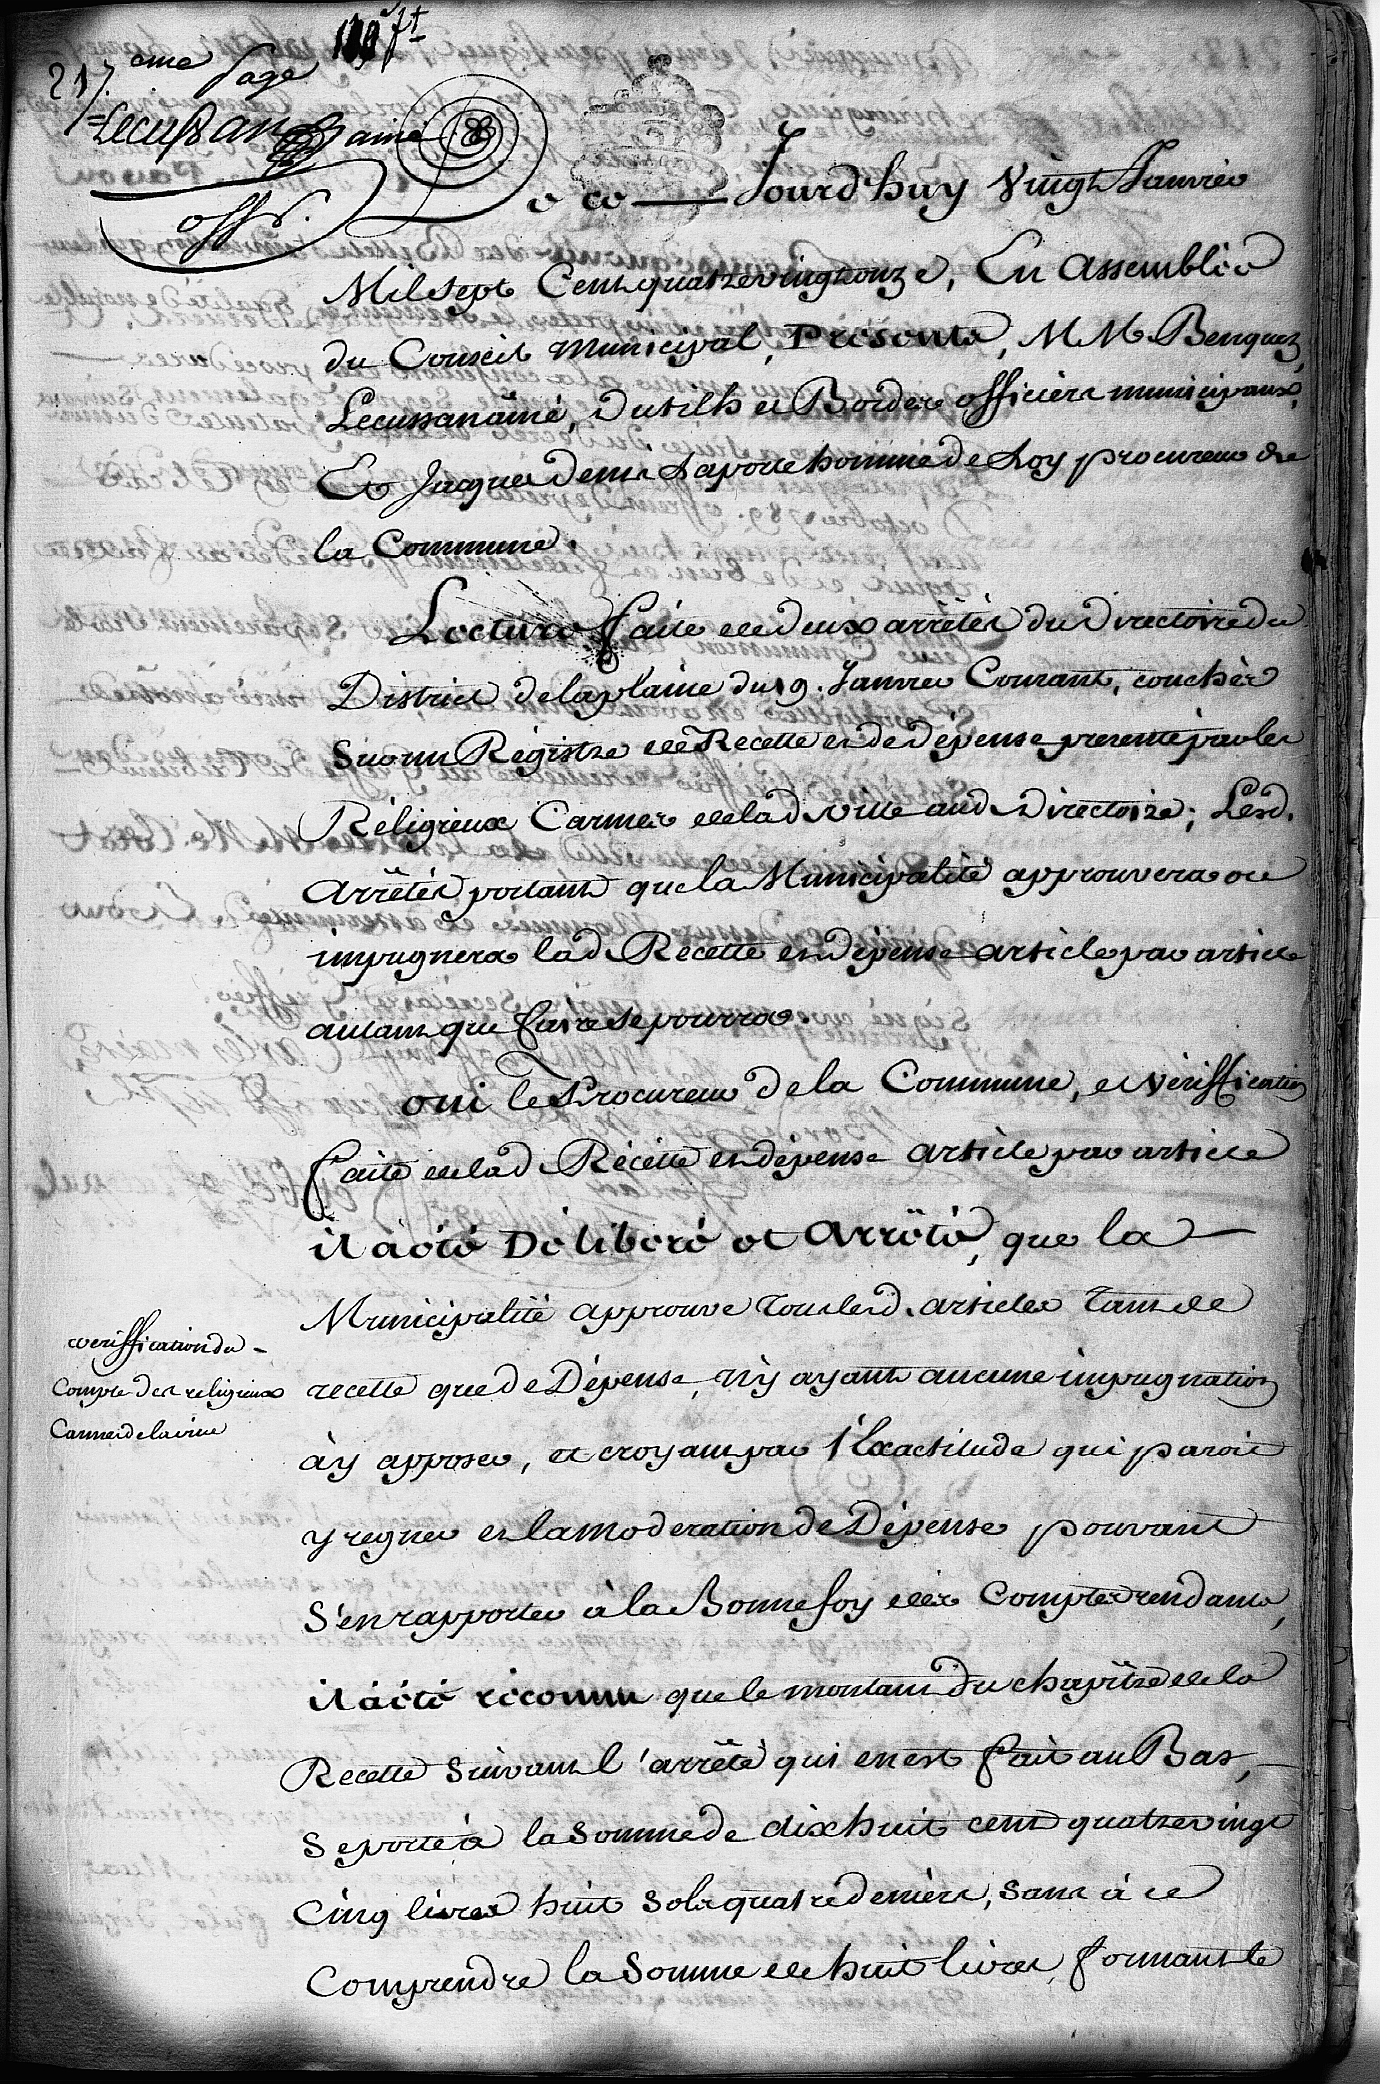 217.eme page
Lecussan ainé
offr.
Ce Jourd'huy Vingt Janvier
Mil sept Cent quatrevingt onze, En Assemblée
du Conseil Municipal, Présents, MM. Benquez,
Lecussan ainé, Dutilh et Bordes officiers municipaux,
Et Jacques denis Laporte homme de Loy procureur de
la Commune.
Lecture faite de deux arrêtés du Directoire du
District de la plaine du 19. Janvier Courant, couchés
Sur un Régistre de Recette et de dépense presenté par les
Réligieux Carmes de lad. ville aud. Directoire; Lesd.
Arrêtés portant que la Municipalité approuvera ou
impugnera lad. Recette et dépense article par article
autant que faire se pourra.
oui le Procureur de la Commune, et vériffication
faite de lad. Récette et dépense article par article
il a été Déliberé et Arrêté, que la
Municipalité approuve tous lesd. articles tant de
vériffication du
recette que de Dépense, n'y ayant aucune impugnation
Compte des religieux
Carmes de la ville
à y apposer, et croyant par l'Exactitude qui paroit
y regner et la moderation de Dépense pouvant
S'en rapporter à la Bonne foy des Comptes rendants,
il a été réconnu que le montant Du chapitre de la
Recette suivant l'arrêté qui en est fait au Bas,
se porte à la Somme de dix huit cent quatrevingt
Cinq livres huit sols quatre deniers, sans à ce
Comprendre la Somme de huit livres formant le